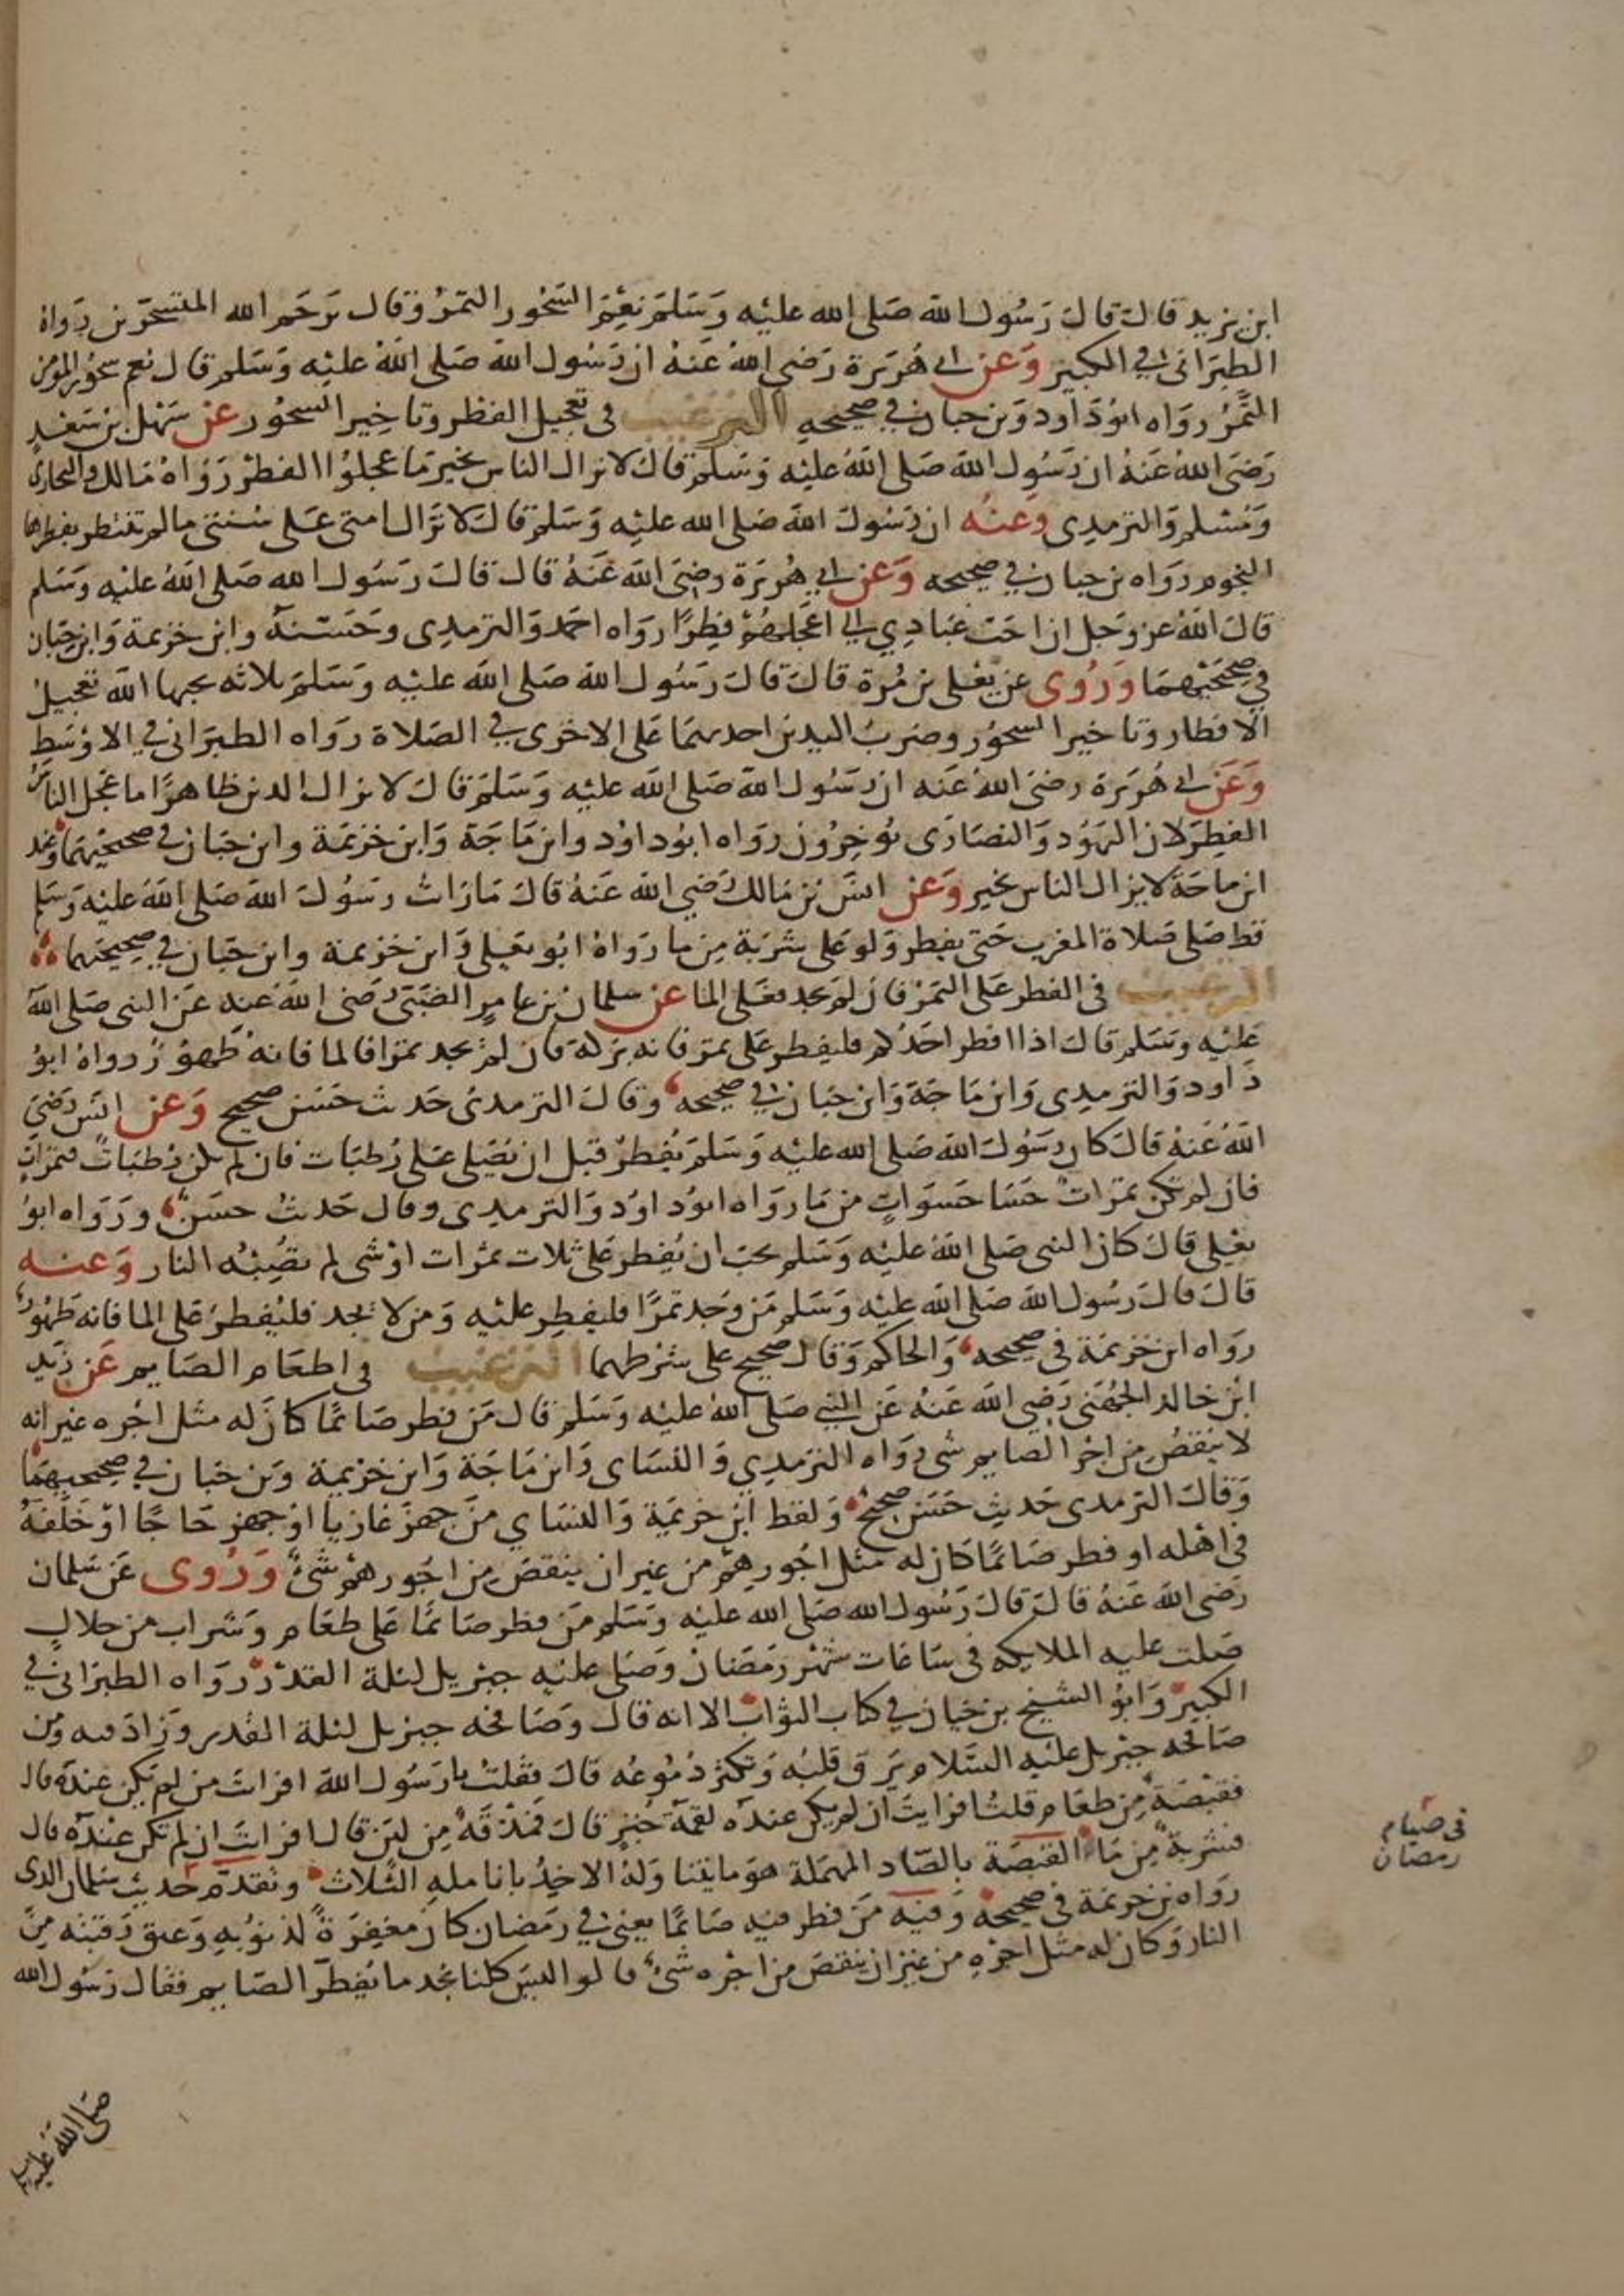 ابن يزيد قال قال رسول الله صلى الله عليه وسلم نعم السحور التمر وقال يرحم الله المتسحرين رواه
الطبراني في الكبير وعن ابي هريرة رضي الله عنه ان رسول الله صلى الله عليه وسلم قال نعم سحور المومن
التمر رواه ابو داود وبن حبان في صحيحه الترغيب في تعجيل الفطر وتاخير السحور عن سهل بن سعد
رضي الله عنه ان رسول الله صلى الله عليه وسلم قال لا يزال الناس بخير ما عجلوا الفطر رواه مالك والبخاري
ومسلم والترمذي وعنه ان رسول الله صلى الله عليه وسلم قال لا تزال امتي على سنتي ما لم تنتظر بفطرها
النجوم رواه بن حبان في صحيحه وعن ابي هريرة رضي الله عنه قال قال رسول الله صلى الله عليه وسلم
قال الله عز وجل ان احب عبادي الي اعجلهم فطرا رواه احمد والترمدى وحسنه وابن خزيمة وابن حبان
في صحيحيهما وروى عن يعلى بن مرة قال قال رسول الله صلى الله عليه وسلم ثلاثه يحبها الله تعجيل
الافطار وتاخير السحور وضرب اليدين احديهما على الاخرى في الصلاة رواه الطبراني في الاوسط
وعن ابي هريرة رضي الله عنه ان رسول الله صلى الله عليه وسلم قال لا يزال الدين ظاهرا ما عجل الناس
الفطر لان اليهود والنصارى يوخرون رواه ابو داود وابن ماجة وابن خزيمة وابن حبان في صحيحيهما وعند
ابن ماجة لا يزال الناس بخير وعن انس بن مالك رضي الله عنه قال ما رايت رسول الله صلى الله عليه وسلم
قط صلى صلاة المغرب حتى يفطر ولو على شربة من ما رواه ابو يعلى وابن خزيمة وابن حبان في صحيحيهما
الترغيب في الفطر على التمر فان لم يجد فعلى الما عن سلمان بن عامر الضبي رضي الله عنه عن النبي صلى الله
عليه وسلم قال اذا افطر احدكم فليفطر على تمر فانه بركة فان لم يجد تمرا فالما فانه طهور رواه ابو
داود والترمدى وابن ماجة وابن حبان في صحيحه وقال الترمدى حديث حسن صحيح وعن انس رضي
الله عنه قال كان رسول الله صلى الله عليه وسلم يفطر قبل ان يصلي على رطبات فان لم تكن رطبات فتمرات
فان لم تكن تمرات حسا حسوات من ما رواه ابو داود والترمدى وقال حديث حسن ورواه ابو
يعلى قال كان النبي صلى الله عليه وسلم يحب ان يفطر على ثلاث تمرات او شي لم تصبه النار وعنه
قال قال رسول الله صلى الله عليه وسلم من وجد تمرا فليفطر عليه ومن لا يجد فليفطر على الما فانه طهور
رواه ابن خزيمة في صحيحه والحاكم وقال صحيح على شرطهما الترغيب في اطعام الصايم عن زيد
ابن خالد الجهني رضي الله عنه عن النبي صلى الله عليه وسلم قال من فطر صائما كان له مثل اجره غير انه
لا ينقص من اجر الصايم شي رواه الترمدي والنساى وابن ماجة وابن خزيمة وبن حبان في صحيحيهما
وقال الترمدى حديث حسن صحيح ولفظ ابن خزيمة والنساي من جهز غازيا او جهز حاجا او خلفه
في اهله او فطر صائما كان له مثل اجورهم من غير ان ينقص من اجورهم شئ وروى عن سلمان
رضي الله عنه قال قال رسول الله صلى الله عليه وسلم من فطر صائما على طعام وشراب من حلال
صلت عليه الملايكه في ساعات شهر رمضان وصلى عليه جبريل ليلة القدر رواه الطبراني في
الكبير وابو الشيخ بن حيان في كتاب الثواب الا انه قال وصافحه جبريل ليلة القدر وزاد فيه ومن
صافحه جبريل عليه السلام يرق قلبه وتكثر دموعه قال فقلت يا رسول الله افرايت من لم يكن عنده قال
فقبصة من طعام قلت افرايت ان لم يكن عنده لقمة خبز قال فمذقة من لبن قال افرايت ان لم تكن عنده قال
فشربة من ما القبصة بالصاد المهملة هو ما يتناوله الاخذ بانامله الثلاث وتقدم حديث سلمان الذى
رواه بن خزيمة في صحيحه وفيه من فطر فيه صائما يعني في رمضان كان مغفرة لذنوبه وعتق رقبته من
النار وكان له مثل اجره من غير ان ينقص من اجره شئ قالوا ليس كلنا نجد ما يفطر الصايم فقال رسول الله
صلى الله عليه
في صيام
رمضان